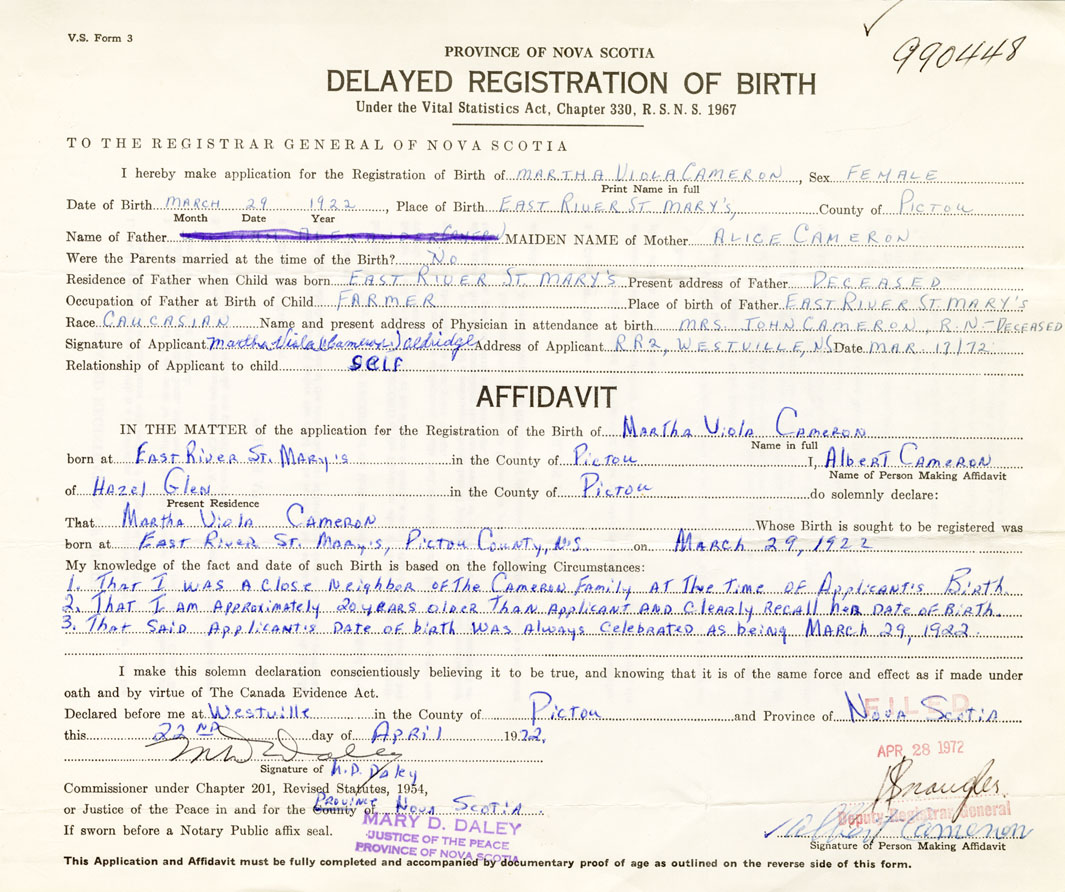 V.S. Form 3
990448
PROVINCE OF NOVA SCOTIA
DELAYED REGISTRATION OF BIRTH
Under the Vital Statistics Act, Chapter 330, R.S.N.S. 1967
TO THE REGISTRAR GENERAL OF NOVA SCOTIA
I hereby make application for the Registration of Birth of MARTHA VIOLA CAMERON, Sex FEMALE
Print Name in full
Date of Birth MARCH 29 1922, Place of Birth EAST RIVER ST MARY'S, County of PICTOU
Month Date Year
Name of Father CAMERON MAIDEN NAME of Mother ALICE CAMERON
Were the Parents married at the time of the Birth? NO
Residence of Father when Child was born EAST RIVER ST MARY'S Present address of Father DECEASED
Occupation of Father at Birth of Child FARMER Place of birth of Father EAST RIVER ST MARY'S
Race CAUCASIAN Name and present address of Physician in attendance at birth MRS. JOHN CAMERON, R.N-DECEASED
Signature of Applicant Martha Viola (Cameron) Aldridge Address of Applicant RR2, WESTVILLE, NS Date MAR 17/72
Relationship of Applicant to child SELF
AFFIDAVIT
IN THE MATTER of the application for the Registration of the Birth of Martha Viola Cameron
Name in full
born at East River St. Mary's in the County of Pictou I, Albert Cameron
Name of Person Making Affidavit
of Hazel Glen in the County of Pictou do solemnly declare:
Present Residence
That Martha Viola Cameron Whose Birth is sought to be registered was
born at East River St. Mary's, Pictou County, N.S. on March 29, 1922
My knowledge of the fact and date of such Birth is based on the following Circumstances:
1. That I was a close neighbor of the Cameron Family at the time of Applicant's Birth
2. That I am approximately 20 years older than applicant and clearly recall her date of birth.
3. That said applicant's date of birth was always celebrated as being March 29, 1922.
I make this solemn declaration conscientiously believing it to be true, and knowing that it is of the same force and effect as if made under
oath and by virtue of The Canada Evidence Act.
Declared before me at Westville in the County of Pictou and Province of Nova Scotia
FILED
this 22nd day of April 1972.
APR 28 1972
M D Daley
Signature of M.D. Daley
Commissioner under Chapter 201, Revised Statutes, 1954,
or Justice of the Peace in and for the County of Province Nova Scotia.
MARY D. DALEY
JUSTICE OF THE PEACE
PROVINCE OF NOVA SCOTIA
Deputy Registrar General
Albert Cameron
If sworn before a Notary Public affix seal.
Signature of Person Making Affidavit
This Application and Affidavit must be fully completed and accompanied by documentary proof of age as outlined on the reverse side of this form.